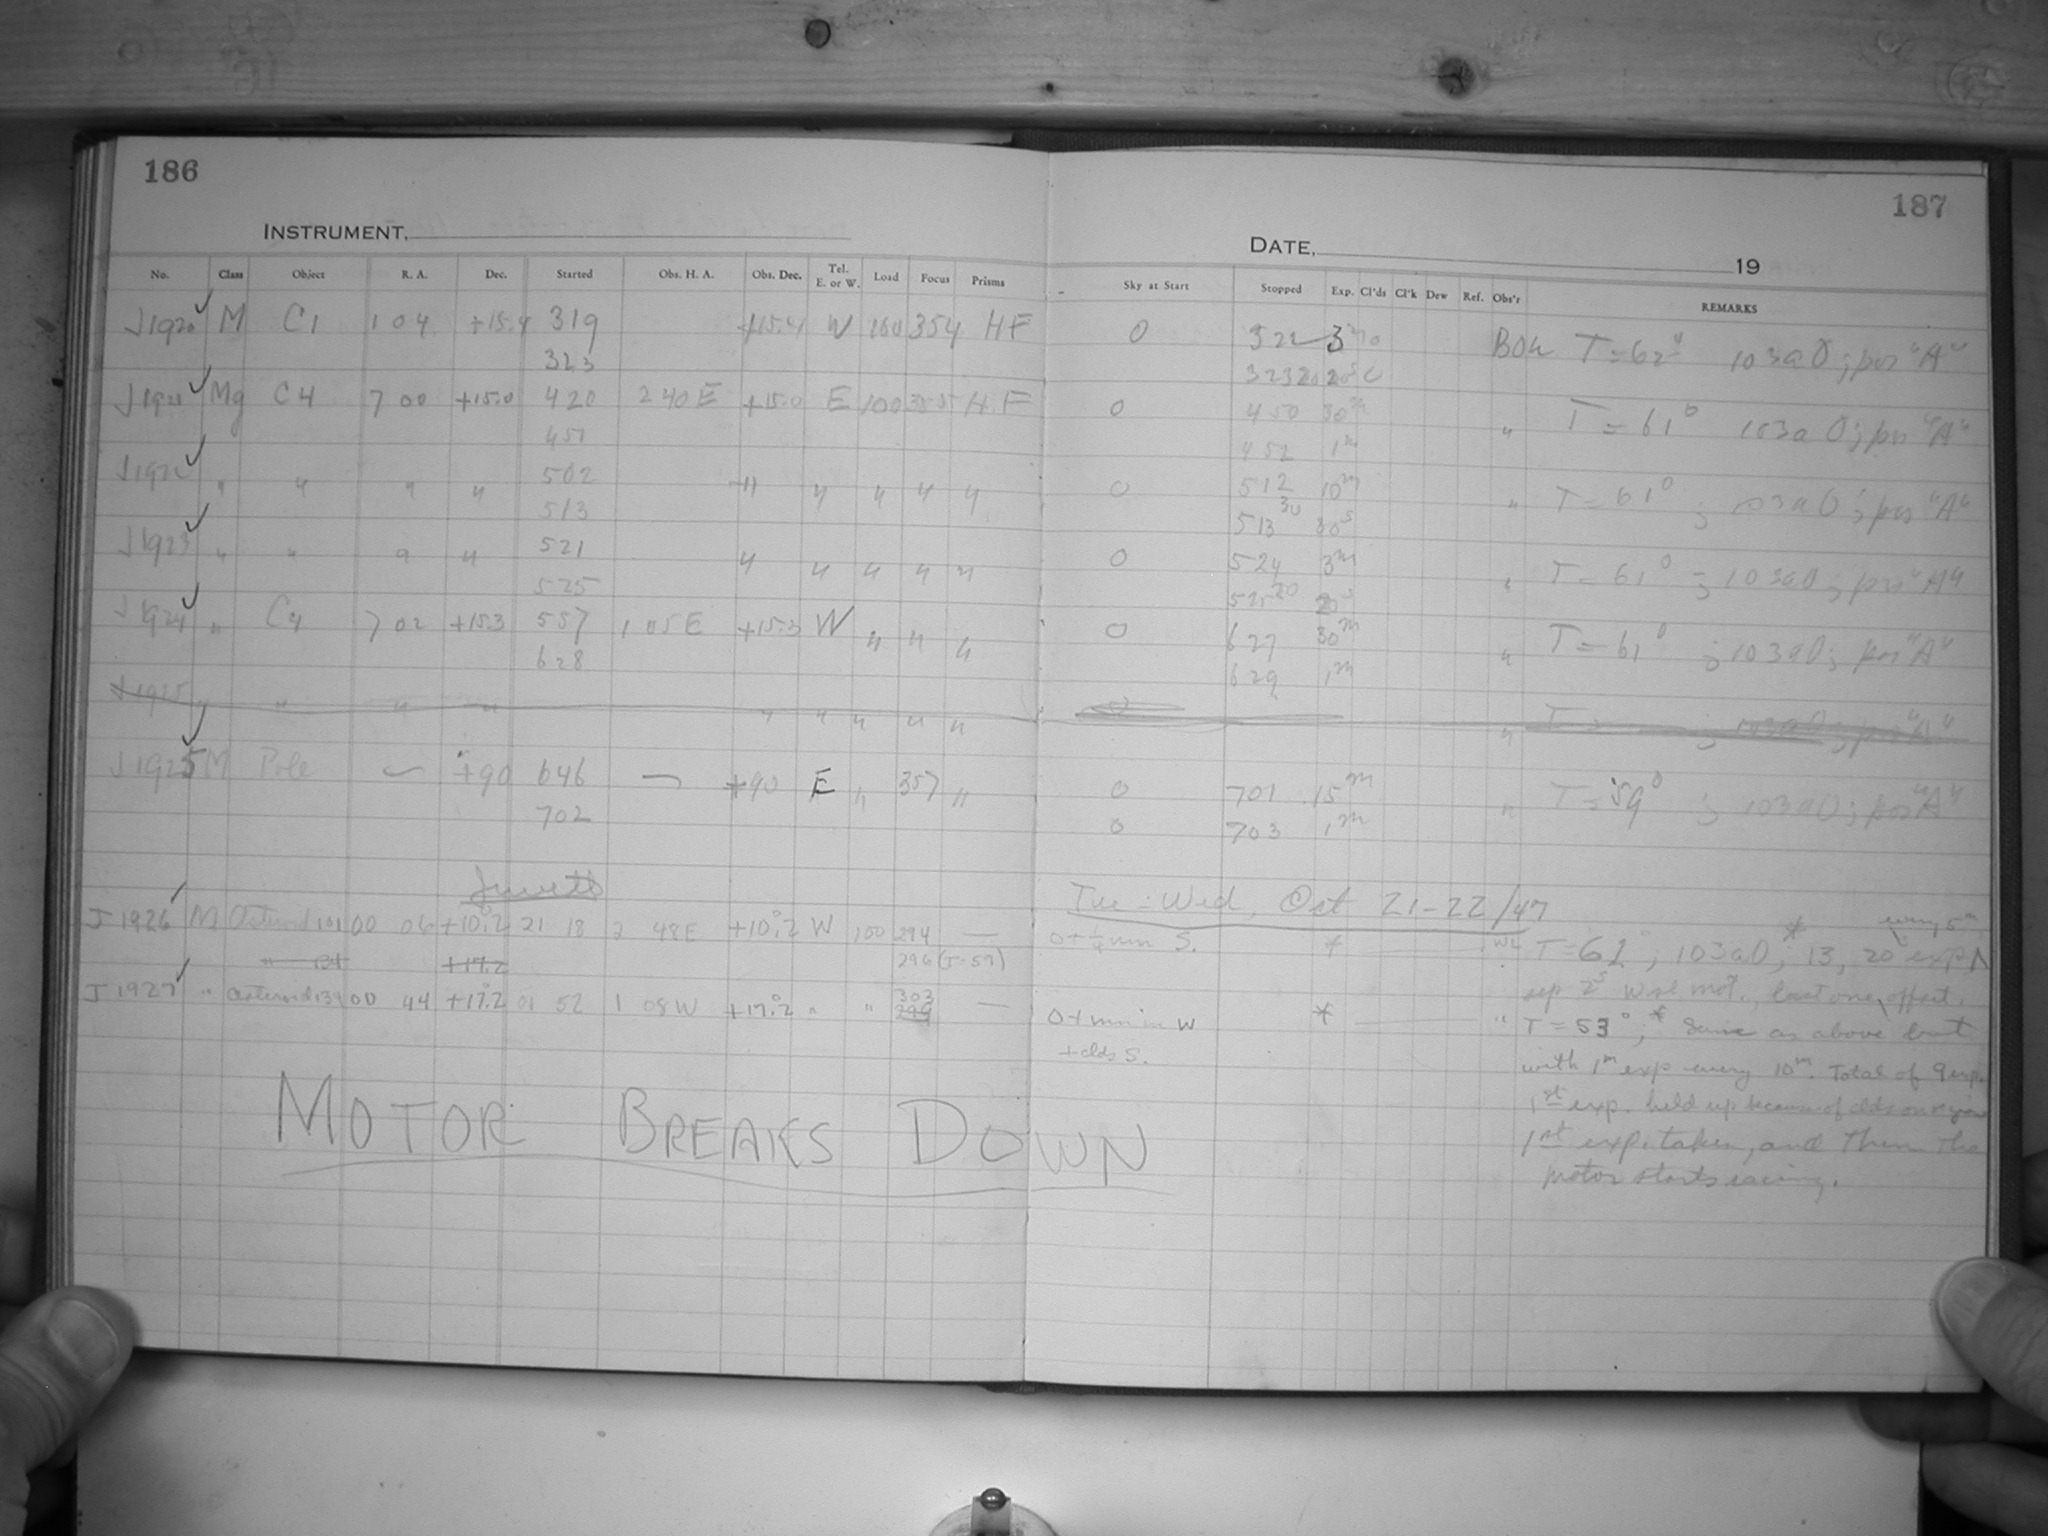 186
187
INSTRUMENT,
DATE, 19
No. Class Object R. A. Dec. Started Obs. H. A. Obs. Dec. Tel. E. or W. Load Focus Prisms Sky at Start Stopped Exp. Cl'ds Cl'k Dew Ref. Obs'r REMARKS
J1920 M C1 1 04 +15.4 319 +15.4 W 100 354 HF 0 322 3m BOK T=62° 103aO; pos "A"
323 32320 20s
J1921 Mg C4 7 00 +15.0 420 2 40 E +15.0 E 100 355 HF 0 450 30m " T=61° 103aO; pos "A"
451 452 1m
J1922 " " " " 502 " " " " " 0 512 10m " T=61° ; 103aO; pos "A"
513 51330 30s
J1923 " " " " 521 " " " " " 0 524 3m " T=61° ; 103aO; pos "A"
525 52520 20s
J1924 " C4 7 02 +15.3 557 1 05 E +15.3 W " " " 0 627 30m " T=61° ; 103aO; pos "A"
628 629 1m
J1925 " " " " " " " " " 0 " T= ; 103aO; pos "A"
J1925 M Pole — +90 646 — +90 E " 357 " 0 701 15m " T=59° ; 103aO; pos "A"
702 0 703 1m
Jewett Tue-Wed, Oct 21-22/47
J1926 M Asteroid 101 00 06 +10.°2 21 18 2 48E +10.°2 W 100 294 — 0+¼mn S. * T=62°; 103aO; * 13, 20s exp every 5m
+17.2 296 (T=59) sep 2s W rel mot., last one offset.
J1927 " Asteroid 139 00 44 +17.°2 01 52 1 08W +17.°2 " " 303 — 0+mn in W * " T=53°; * Same as above but
299 + clds S. with 1m exp every 10m. Total of 9 exp.
1st exp. held up because of clds
MOTOR BREAKS DOWN
1st exp. taken, and then the
motor starts racing.